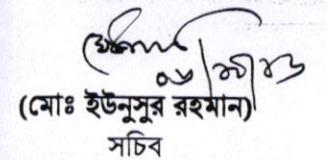 (মোঃ ইউনুসুর রহমান)
সচিব